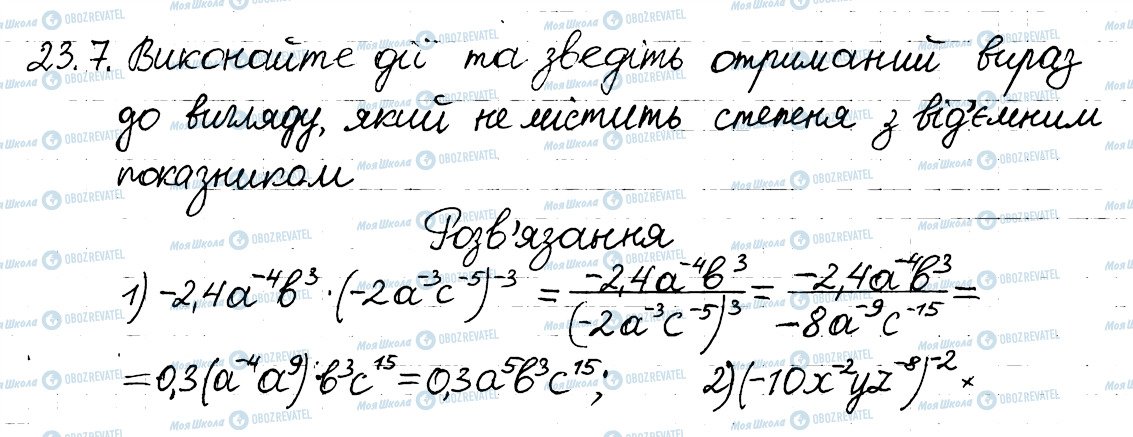 23.7. Виконайте дії та зведіть отриманий вираз
до вигляду, який не містить степеня з від'ємним
показником
Розв'язання
1) -2,4a⁻⁴b³ · (-2a⁻³c⁻⁵)⁻³ = (-2,4a⁻⁴b³)/((-2a⁻³c⁻⁵)³) = (-2,4a⁻⁴b³)/(-8a⁻⁹c⁻¹⁵) =
= 0,3(a⁻⁴a⁹)·b³c¹⁵ = 0,3a⁵b³c¹⁵; 2) (-10x⁻²yz⁻⁸)⁻² ×